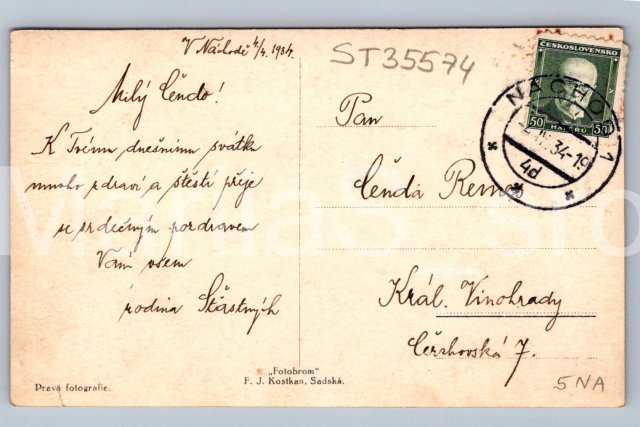 V Náchodě 4/4 1934.
ST35574
Milý Čéndo!
K Tvému dnešnímu svátku
mnoho zdraví a štěstí přeje
se srdečným pozdravem
Vám všem
rodina Šťastných
Pan
Čenda Remeš
Král. Vinohrady
Čerchovská 7.
ČESKOSLOVENSKO
50 HALÉŘŮ 50
NÁCHOD 1
IV. 34-19
4d
„Fotobrom"
F. J. Kostkan, Sadská.
Pravá fotografie.
5NA